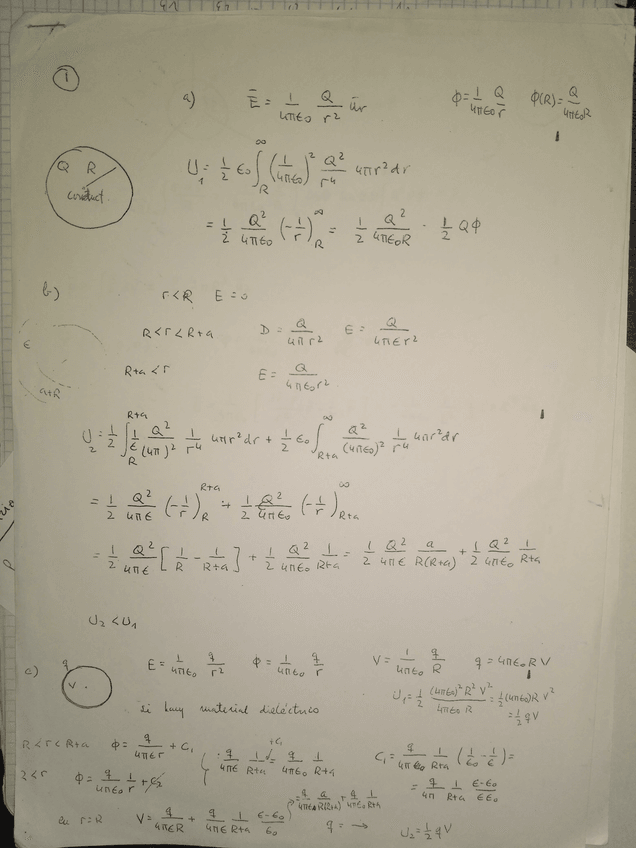 1
a) Ē = 1/4πε₀ Q/r² ūr   Φ = 1/4πε₀ Q/r   Φ(R) = Q/4πε₀R
Q R
conduct.
U₁ = 1/2 ε₀ ∫_R^∞ (1/4πε₀)² Q²/r⁴ 4πr² dr
= 1/2 Q²/4πε₀ (-1/r)_R^∞ = 1/2 Q²/4πε₀R · 1/2 QΦ
b) r<R E = 0
R<r<R+a D = Q/4πr² E = Q/4πεr²
ε
a+R
R+a<r E = Q/4πε₀r²
U₂ = 1/2 ∫_R^{R+a} 1/ε Q²/(4π)² 1/r⁴ 4πr² dr + 1/2 ε₀ ∫_{R+a}^∞ Q²/(4πε₀)² 1/r⁴ 4πr² dr
= 1/2 Q²/4πε (-1/r)_R^{R+a} + 1/2 Q²/4πε₀ (-1/r)_{R+a}^∞
= 1/2 Q²/4πε [1/R - 1/R+a] + 1/2 Q²/4πε₀ 1/R+a = 1/2 Q²/4πε a/R(R+a) + 1/2 Q²/4πε₀ 1/R+a
U₂ < U₁
c) q
V.
E = 1/4πε₀ q/r² Φ = 1/4πε₀ q/r V = 1/4πε₀ q/R q = 4πε₀RV
U₁ = 1/2 (4πε₀)²R²V²/4πε₀R = 1/2 (4πε₀)RV²
= 1/2 qV
si hay material dieléctrico
R<r<R+a Φ = q/4πεr + C₁ q/4πε 1/R+a + C₁ = q/4πε₀ 1/R+a C₁ = q/4π 1/R+a (1/ε₀ - 1/ε) =
= q/4π 1/R+a ε-ε₀/εε₀
Φ = q/4πε₀ 1/r + C₂
en r=R V = q/4πεR + q/4πε 1/R+a ε-ε₀/ε₀
= q/4πε a/R(R+a) + q/4πε₀ 1/R+a
q = → U₂ = 1/2 qV